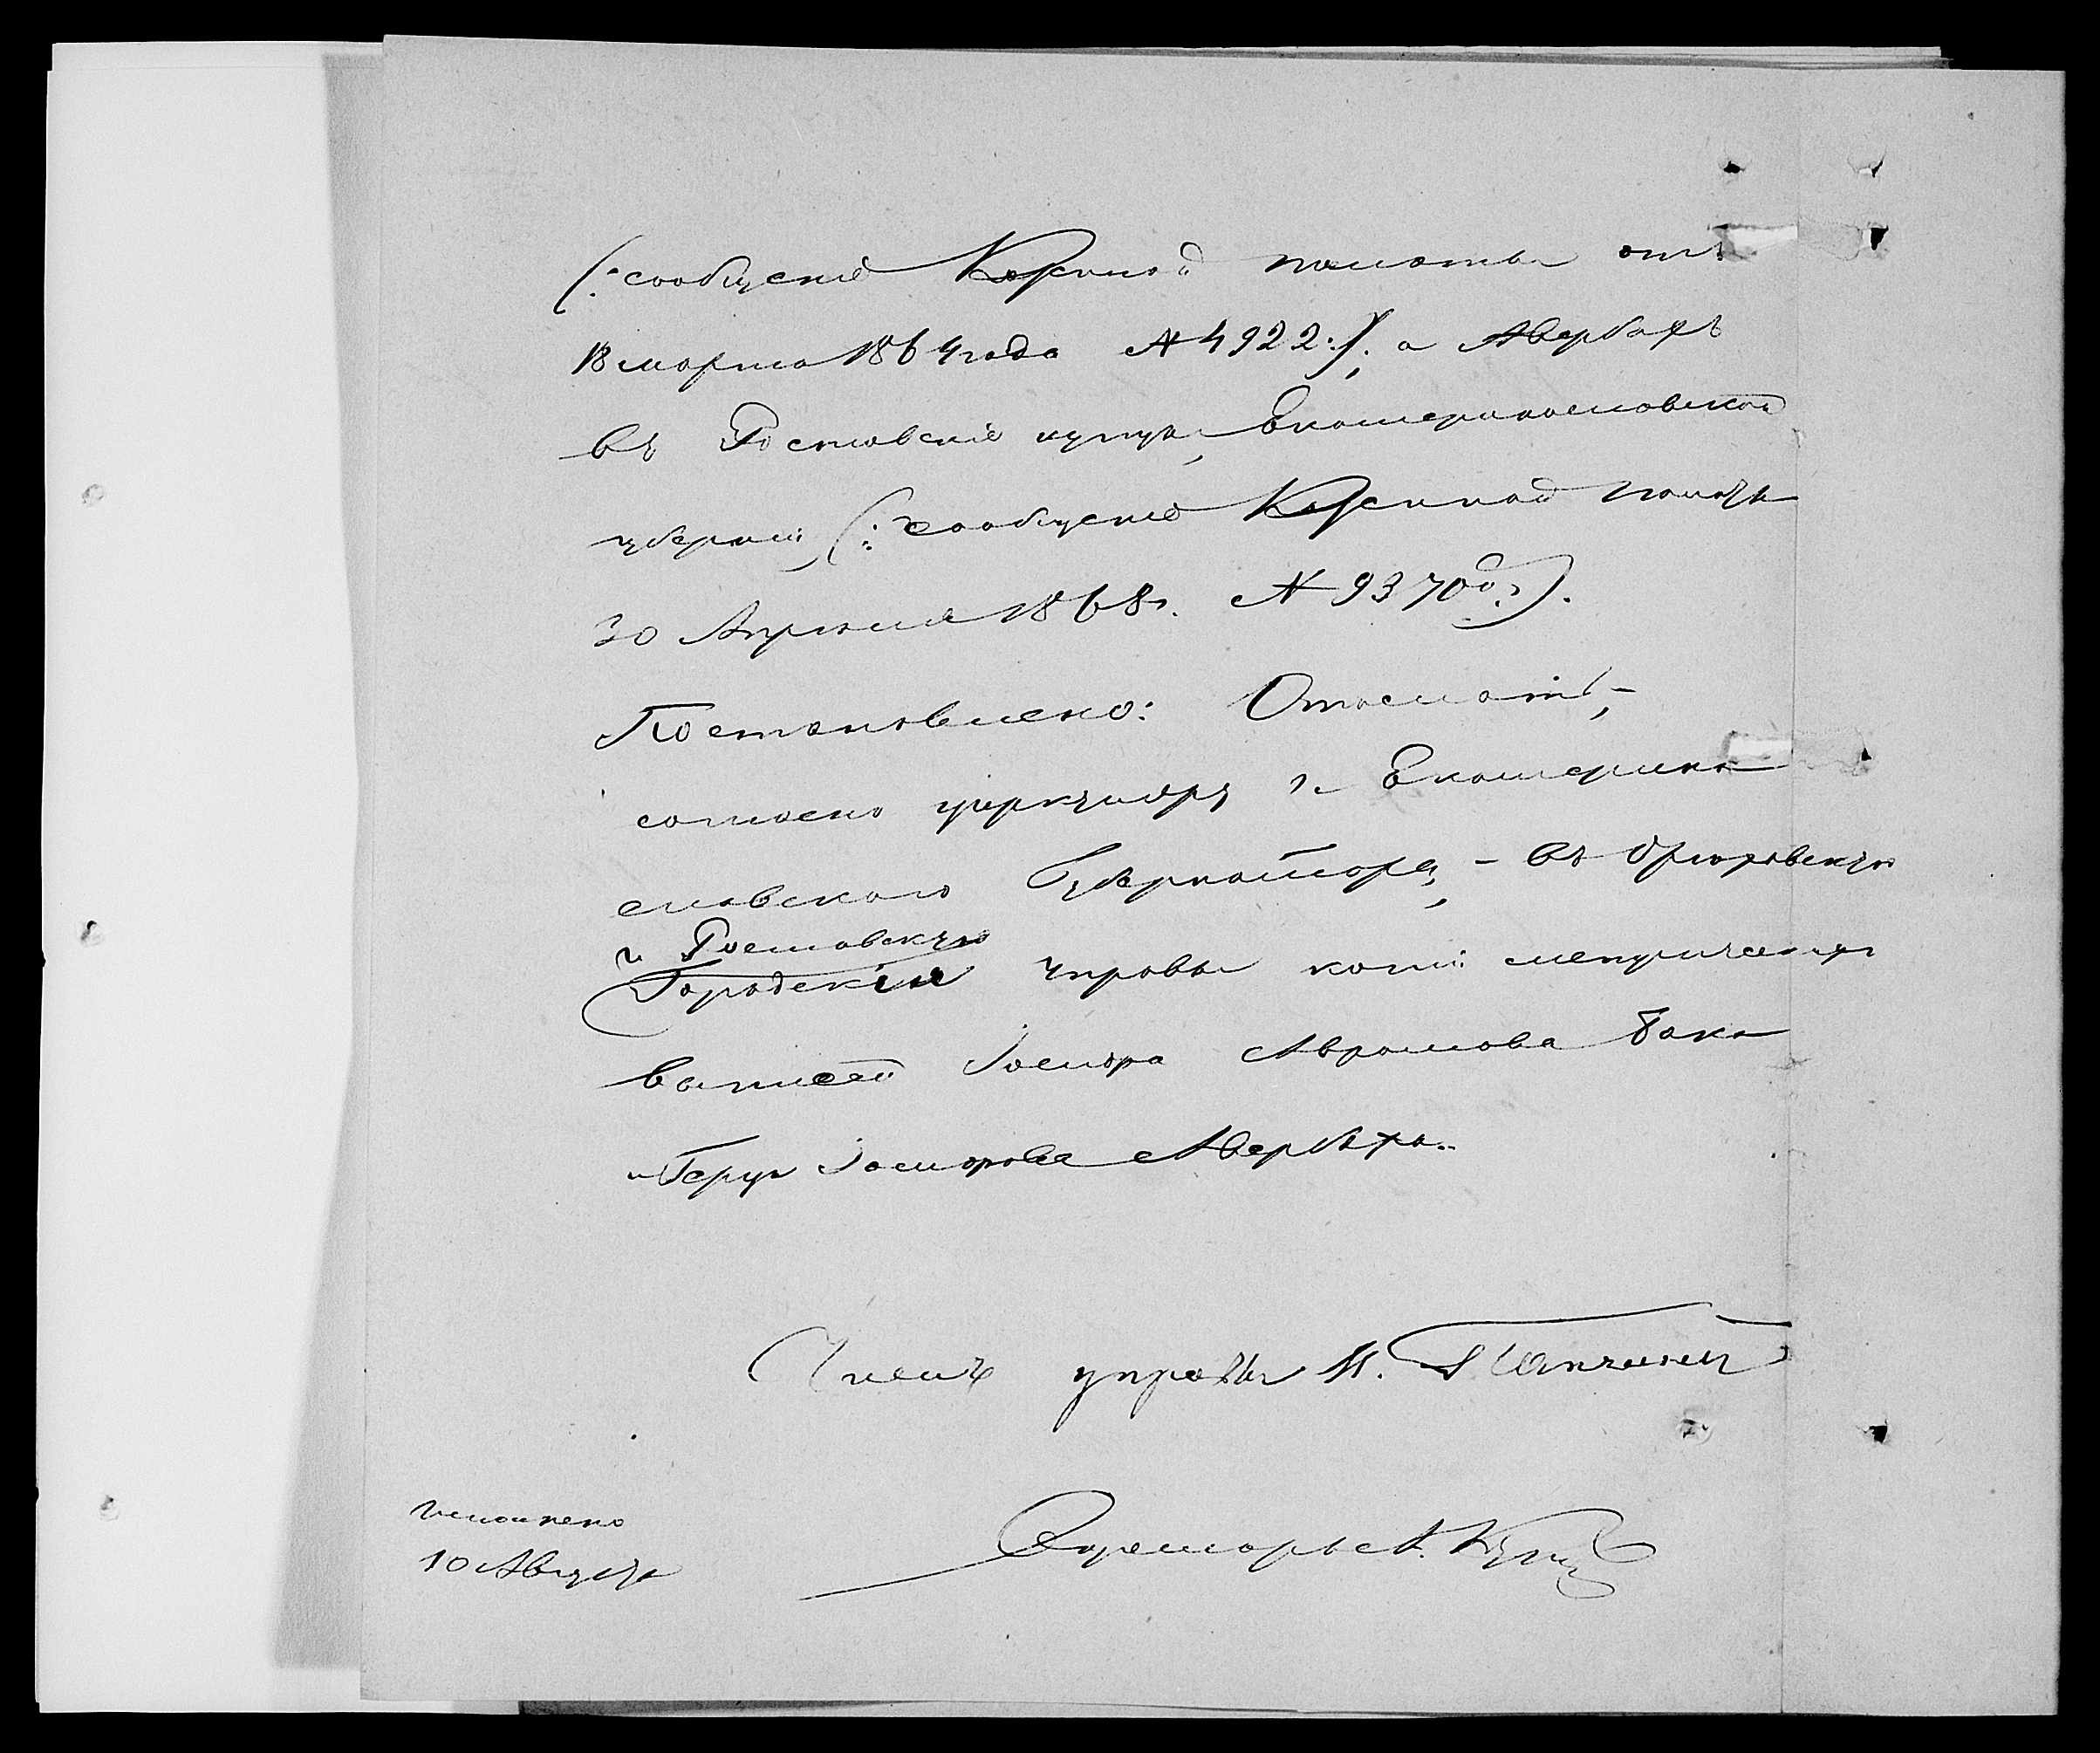 (: сообщеніе Казенной палаты отъ
18 марта 1864 года № 4922 :), а Авербахъ
въ Ростовскіе купцы, Екатеринославской
губерніи, (: сообщеніе Казенной палаты
30 Апрѣля 1868 г. № 9370 :).
Постановлено: Отослать,-
согласно циркуляру г. Екатерино
славского Губернатора, - въ Орѣховскую
и Ростовскую
Городскія управы копіи метрических
выписей Іосифа Абрамова Бака
и Герца Іосифова Авербаха.
Членъ управы М.
Секретарь А.
Исполнено
10 Августа